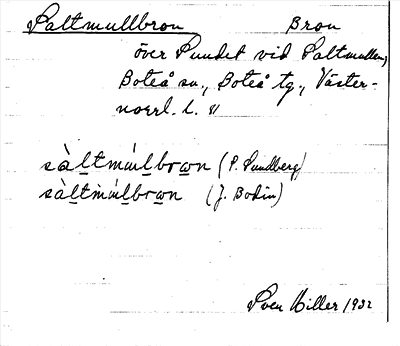 Saltmullbron Bron
över Sundet vid Saltmullen,
Boteå sn., Boteå tg., Väster-
norrl. L. "
sàl̲tmúl̲brω̲n (P. Sundberg)
sàl̲tmùl̲brω̲n (J. Bodin)
Sven Hiller 1932